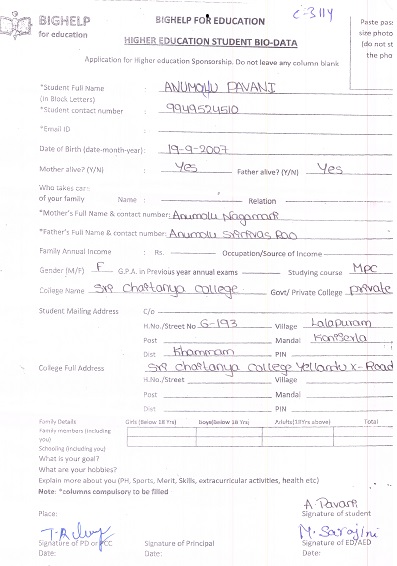 BIGHELP
for education
BIGHELP FOR EDUCATION
C-3114
HIGHER EDUCATION STUDENT BIO-DATA
Paste pass
size photo
(do not st
the pho
Application for Higher education Sponsorship. Do not leave any column blank
*Student Full Name : ANUMOLU PAVANI
(in Block Letters)
*Student contact number : 9949524510
*Email ID :
Date of Birth (date-month-year): 19-9-2007
Mother alive? (Y/N) Yes Father alive? (Y/N) Yes
Who takes care
of your family Name : Relation
*Mother's Full Name & contact number: Anumolu Nagamani
*Father's Full Name & contact number: Anumolu Srinivas Rao
Family Annual Income : Rs. Occupation/Source of Income
Gender (M/F) F G.P.A. in Previous year annual exams Studying course MPC
College Name Sri Chaitanya college Govt/ Private College private
Student Mailing Address C/o
H.No./Street No 6-193 Village Lalapuram
Post Mandal
Dist Khammam PIN
College Full Address Sri Chaitanya college Yellandu X-Road
H.No./Street Village
Post Mandal
Dist PIN
Family Details Girls (Below 18 Yrs) Boys(Below 18 Yrs) Adults(18Yrs above) Total
Family members (including
you)
Schooling (including you)
What is your goal?
What are your hobbies?
Explain more about you (PH, Sports, Merit, Skills, extracurricular activities, health etc)
Note: *columns compulsory to be filled
A. Pavani
Place: Signature of student
M. Sarojini
Signature of PD or PCC Signature of Principal Signature of ED/AED
Date: Date: Date: